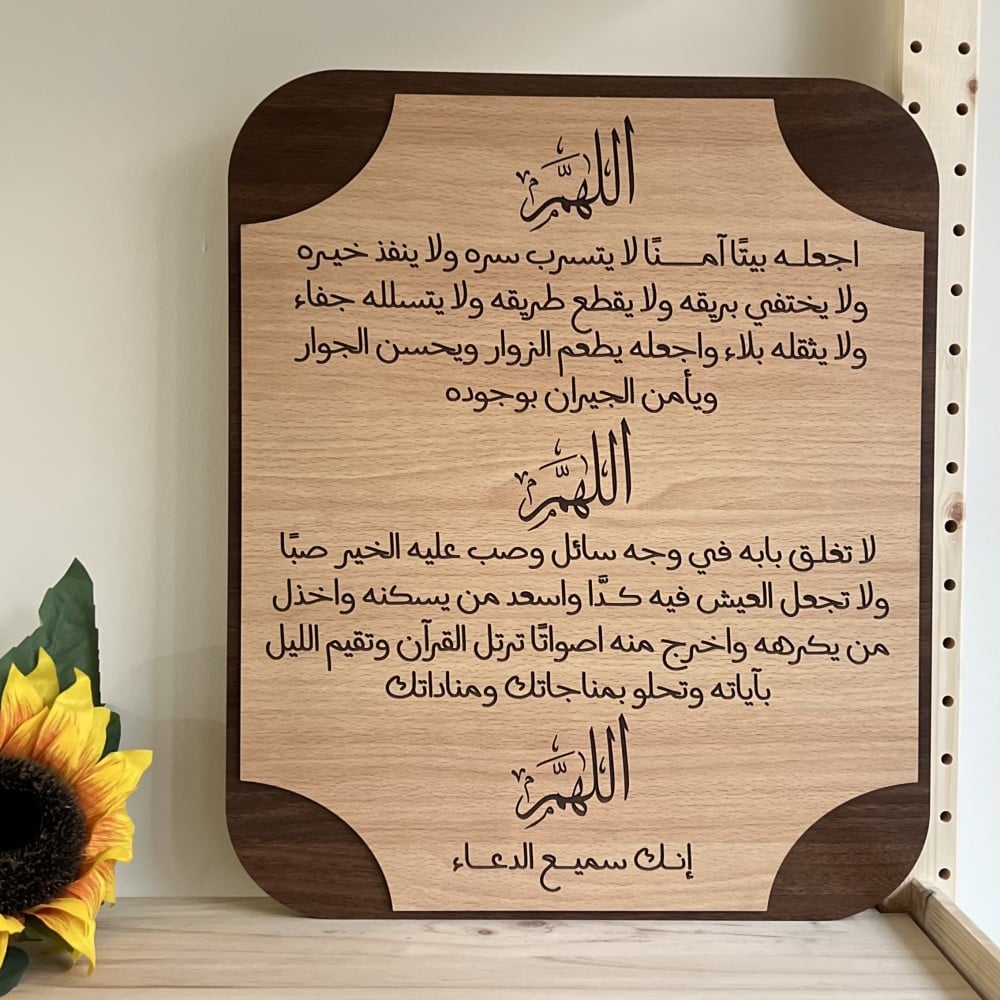 اللهم
اجعله بيتًا آمنًا لا يتسرب سره ولا ينفذ خيره
ولا يختفي بريقه ولا يقطع طريقه ولا يتسلله جفاء
ولا يثقله بلاء واجعله يطعم الزوار ويحسن الجوار
ويأمن الجيران بوجوده
اللهم
لا تغلق بابه في وجه سائل وصب عليه الخير صبًا
ولا تجعل العيش فيه كدًّا واسعد من يسكنه واخذل
من يكرهه واخرج منه اصواتًا ترتل القرآن وتقيم الليل
بآياته وتحلو بمناجاتك ومناداتك
اللهم
إنك سميع الدعاء